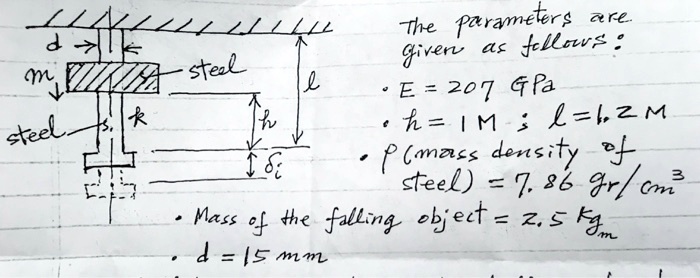 The parameters are
given as follows:
d
steel
m
l
• E = 207 GPa
steel
k
h
• h = 1 M ; l = 1.2 M
δi
• ρ (mass density of
steel) = 7.86 gr/cm³
• Mass of the falling object = 2.5 Kgm
• d = 15 mm